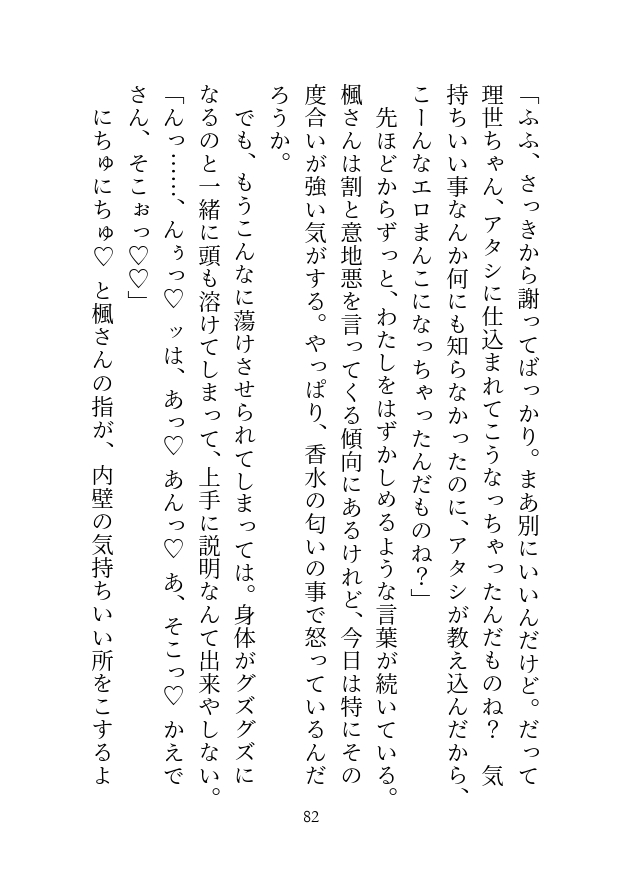 「ふふ、さっきから謝ってばっかり。まあ別にいいんだけど。だって
理世ちゃん、アタシに仕込まれてこうなっちゃったんだものね？　気
持ちいい事なんか何にも知らなかったのに、アタシが教え込んだから、
こーんなエロまんこになっちゃったんだものね？」
　先ほどからずっと、わたしをはずかしめるような言葉が続いている。
楓さんは割と意地悪を言ってくる傾向にあるけれど、今日は特にその
度合いが強い気がする。やっぱり、香水の匂いの事で怒っているんだ
ろうか。
　でも、もうこんなに蕩けさせられてしまっては。身体がグズグズに
なるのと一緒に頭も溶けてしまって、上手に説明なんて出来やしない。
「んっ……、んぅっ♡　ッは、あっ♡　あんっ♡　あ、そこっ♡　かえで
さん、そこぉっ♡♡」
　にちゅにちゅ♡　と楓さんの指が、内壁の気持ちいい所をこするよ
82